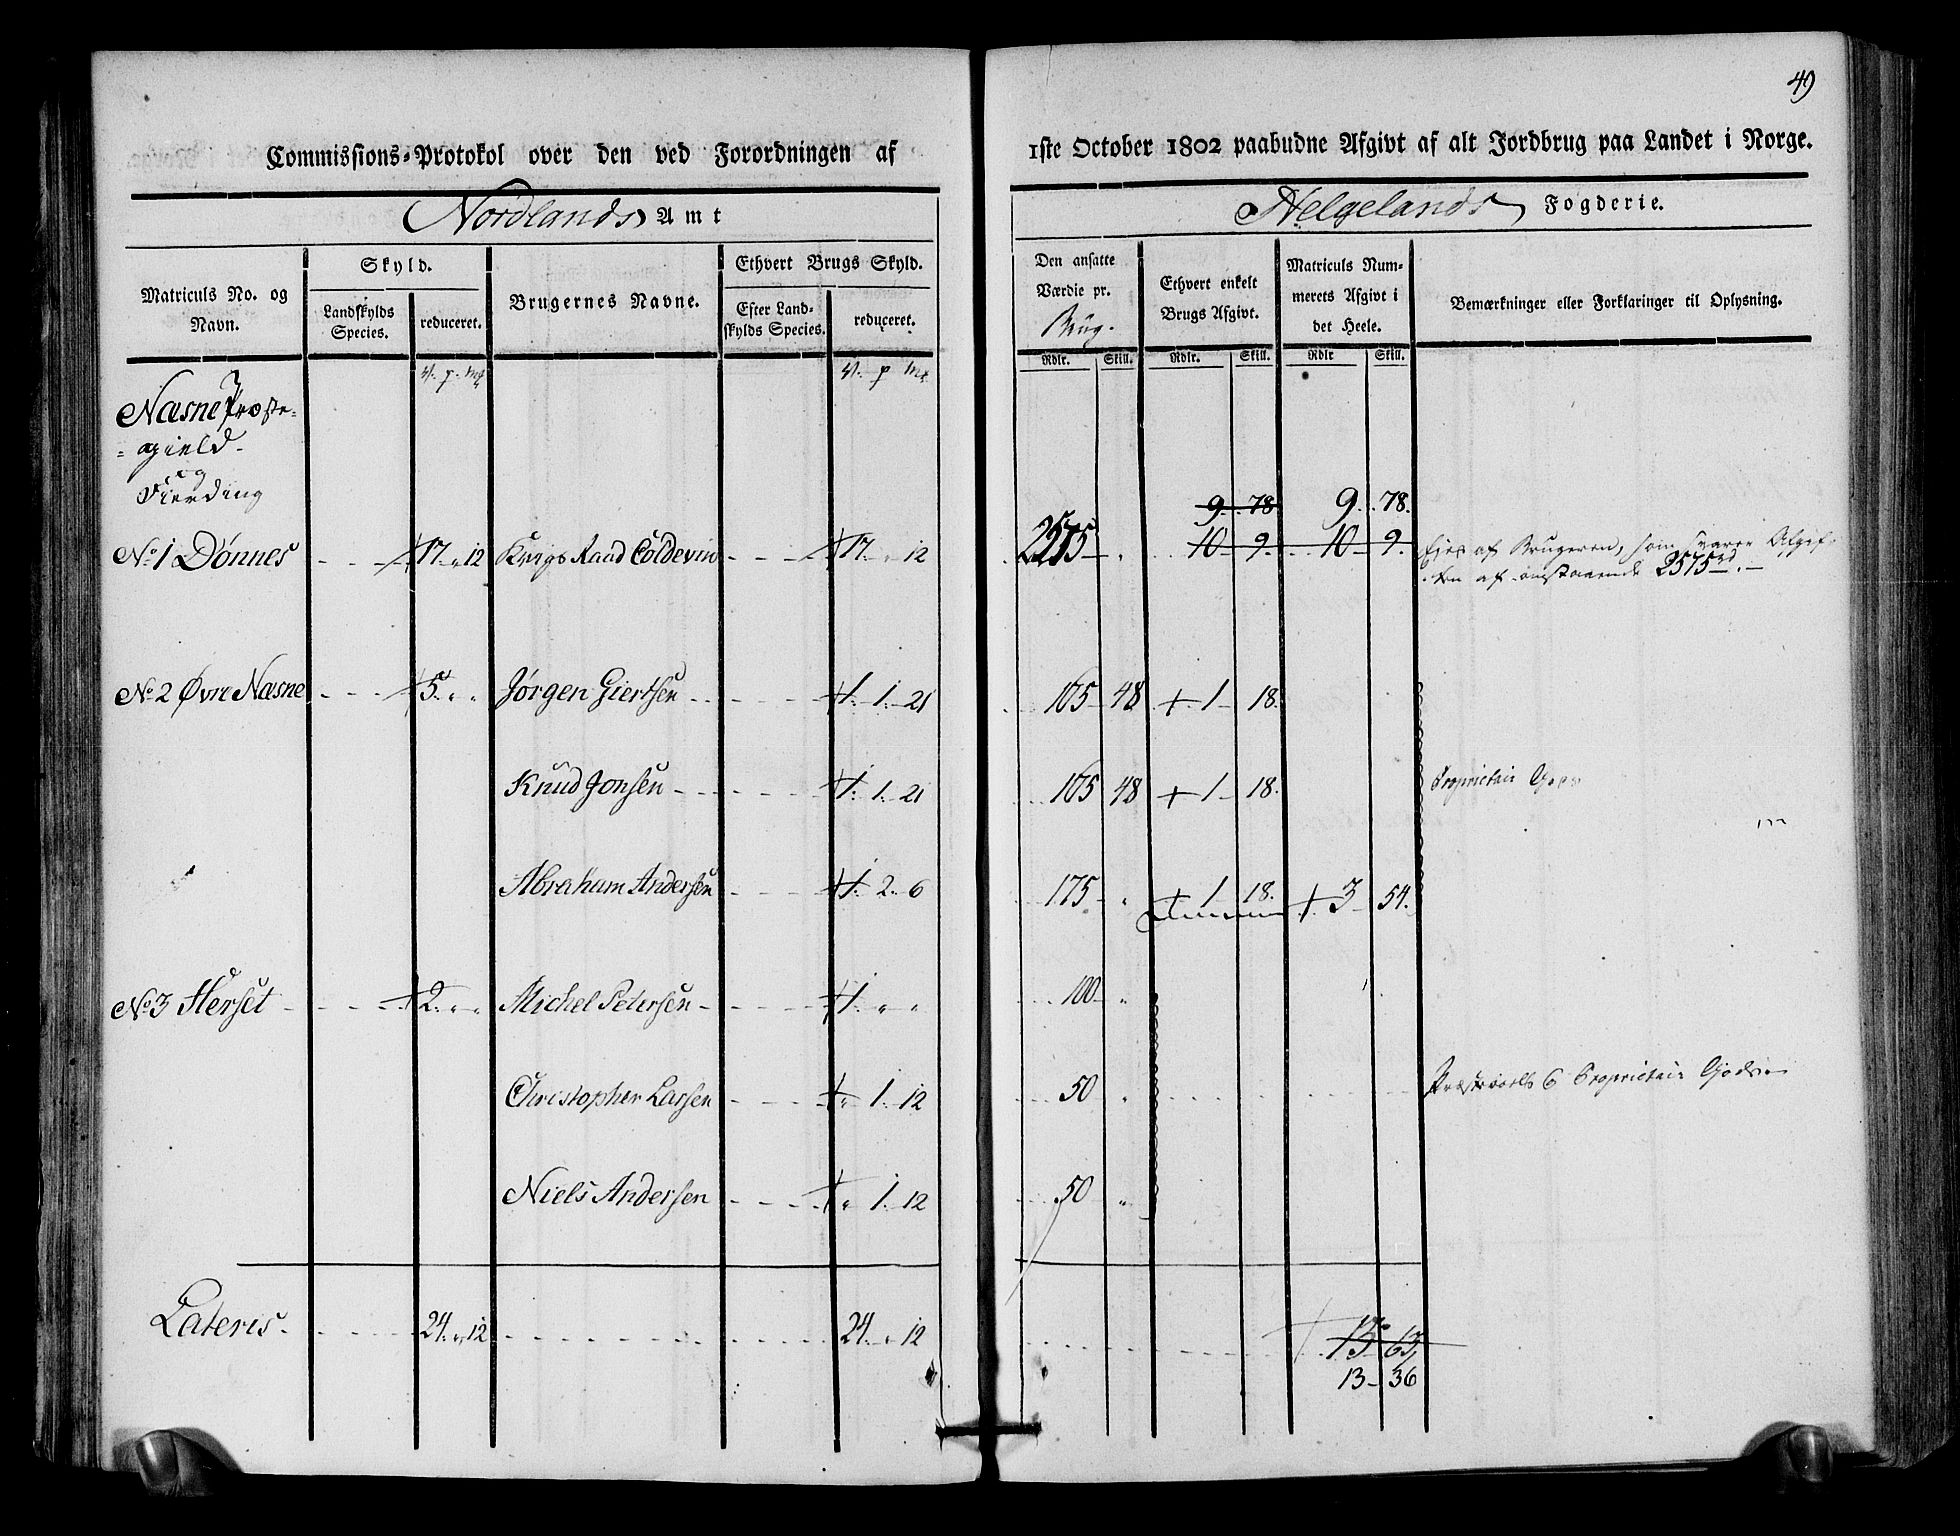 49
Commissions-Protokol over den ved Forordningen af 1ste October 1802 paabudne Afgivt af alt Jordbrug paa Landet i Norge.
Nordlands Amt
Helgelands Fogderie.
Matriculs No. og Navn.
Skyld.
Landskylds Species.
reduceret.
Brugernes Navne.
Ethvert Brugs Skyld.
Efter Landskylds Species.
reduceret.
Den ansatte Værdie pr. Brug.
Ethvert enkelt Brugs Afgivt.
Matriculs Nummerets Afgivt i det Heele.
Bemærkninger eller Forklaringer til Oplysning.
Rdlr. Skill. Rdlr. Skill. Rdlr Skill.
V. p. Mk V. p Mk
Næsne Præste-
=gield
og
Fierding
9. 78. 9. 78.
No 1 Dønnes 17. " 12 Krigs Raad Coldevin 17. " 12 2575 " 10 9. 10 9. Ejes af Brugeren, som svarer Afgif-
ten af omstaaende 2575 rd.
No 2 Øvre Næsne 5. " " Jørgen Giertsen 1. 1. 21 165 48 1 18.
Knud Jonsen 1. 1. 21 165 48 1 18. Proprietair Gods
Abraham Andersen 1. 2. 6 175 " 1 18. 3 54.
No 3 Herset 2. " " Michel Petersen 1. " " 100 "
Christopher Larsen " 1. 12 50 " 6 Proprietair Gods
Niels Andersen " 1. 12 50 "
Lateris 24. " 12 24. " 12 13 63,
13 36